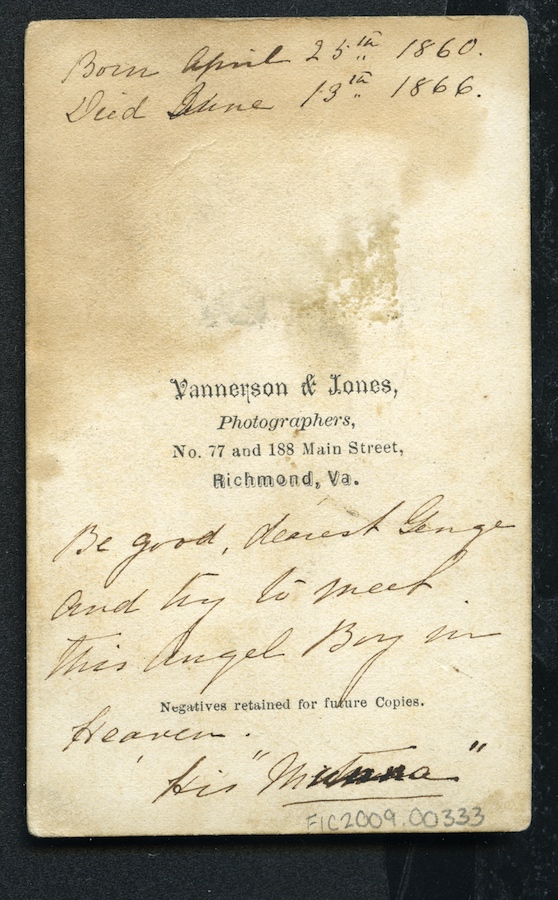 Born April 25th 1860.
Died June 13th 1866.
Vannerson & Jones,
Photographers,
No. 77 and 188 Main Street,
Richmond, Va.
Be good, dearest George
and try to meet
this Angel Boy in
Negatives retained for future Copies.
Heaven.
His "
"
FIC2009.00333